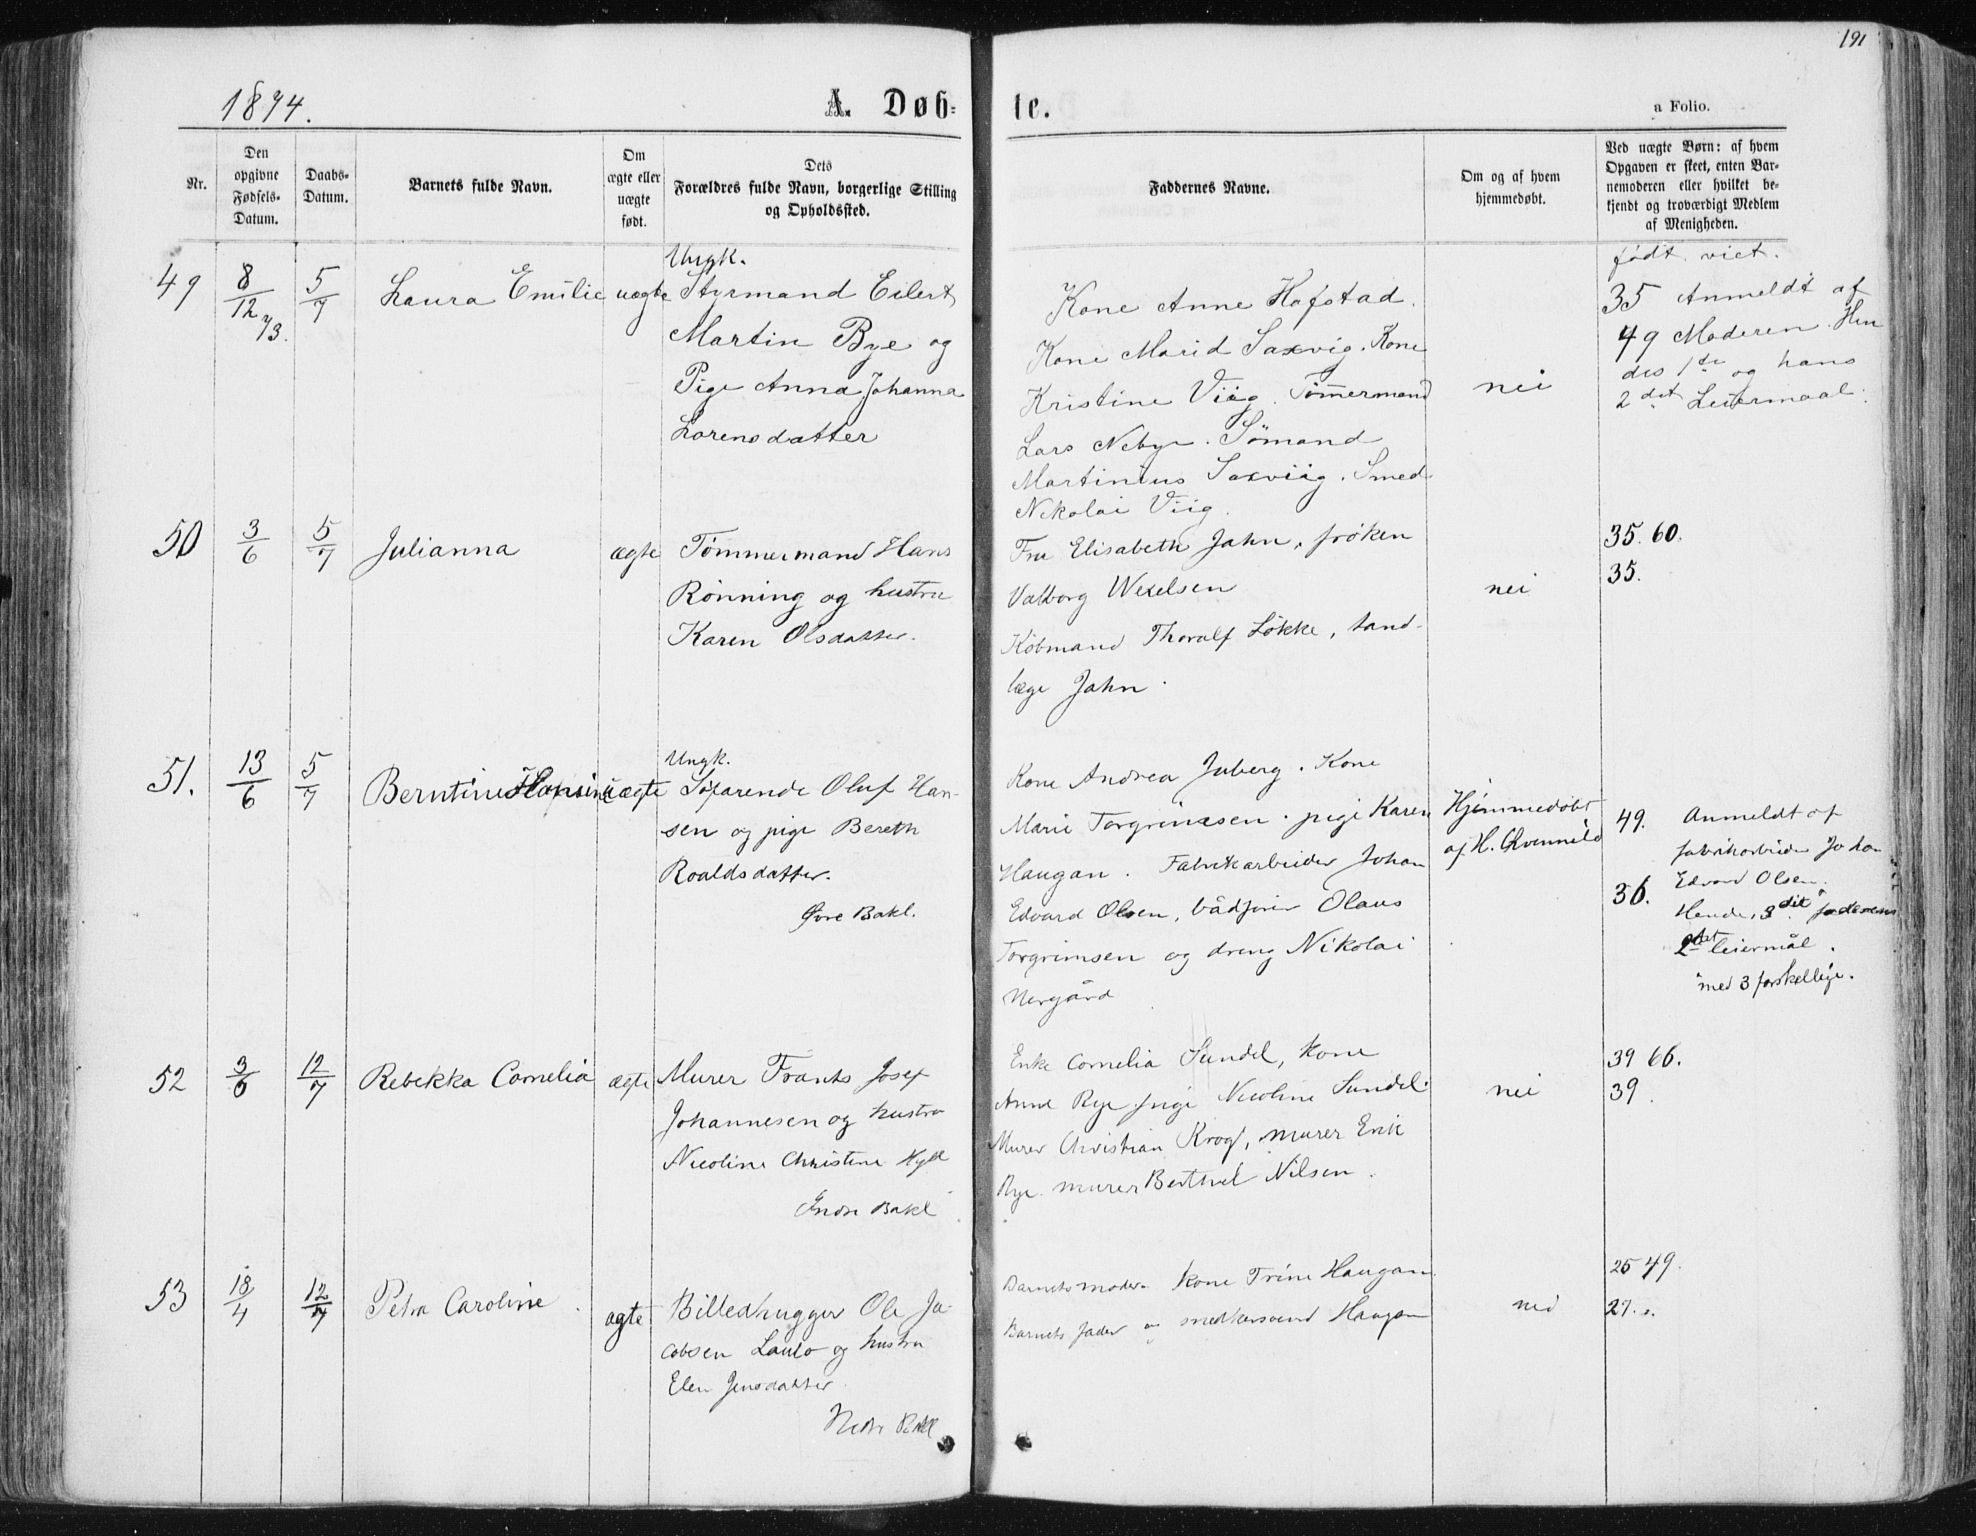 191
1874.
A. Døb=
te.
a Folio.
Nr.
Den opgivne Fødsels-Datum.
Daabs-Datum.
Barnets fulde Navn.
Om ægte eller uægte født.
Dets Forældres fulde Navn, borgerlige Stilling og Opholdssted.
Faddernes Navne.
Om og af hvem hjemmedøbt.
Ved uægte Børn: af hvem Opgaven er skeet, enten Barnemoderen eller hvilket bekjendt og troværdigt Medlem af Menigheden.
49
8/12 73.
5/7
Laura Emilie
uægte
Ungk.
Styrmand Eilert
Martin Bye og
Pige Anna Johanna
Lorensdatter
Kone Anne Hafstad.
Kone Marid Saxvig. Kone
Kristine Viig. Tömmermand
Lars Nebye. Sömand
Martinius Saxviig. Smed
Nikolai Viig.
nei
født viet.
35 Anmeldt af
49 Moderen. Hen
des 1ste og hans
2det Leiermaal.
50
3/6
5/7
Julianna
ægte
Tömmermand Hans
Rönning og hustru
Karen Olsdatter.
Fru Elisabeth Jahn, fröken
Valborg Wexelsen
Köbmand Thoralf Lökke, tand-
læge Jahn.
nei
35. 60.
35.
51.
13/6
5/7
Berntine Hansine
uægte
Ungk.
Söfarende Oluf Han-
sen og pige Bereth
Roaldsdatter.
Øvre Bakl.
Kone Andrea Juberg. Kone
Marie Torgrimsen. pige Karen
Haugan. Fabrikarbeider Johan
Edvard Olsen, bådfører Olaus
Torgrimsen og dreng Nikolai
Nergård
Hjemmedøbt
af H.
49. Anmeldt af
fabrikarbeider Johan
Edvard Olsen.
36. Hendes 3die faderens
2det leiermål.
med 3 forskellige.
52
3/6
12/7
Rebekka Cornelia
ægte
Murer Frants Josef
Johannesen og hustru
Nicoline Christine
Indre Bakl
Enke Cornelia Sundel, kone
Anne Rye pige Nicoline Sundel.
Murer Christian Krog, murer Erik
Rye. murer Berthel Nilsen.
nei
39 66.
39.
53
18/4
12/7
Petra Caroline
ægte
Billedhugger Ole Ja-
cobsen Laulo og hustru
Elen Jensdatter.
Nedre Bakl
Barnets moder. kone Trine Haugan
Barnets fader og smedsvend Haugan
nei
25 49.
27.